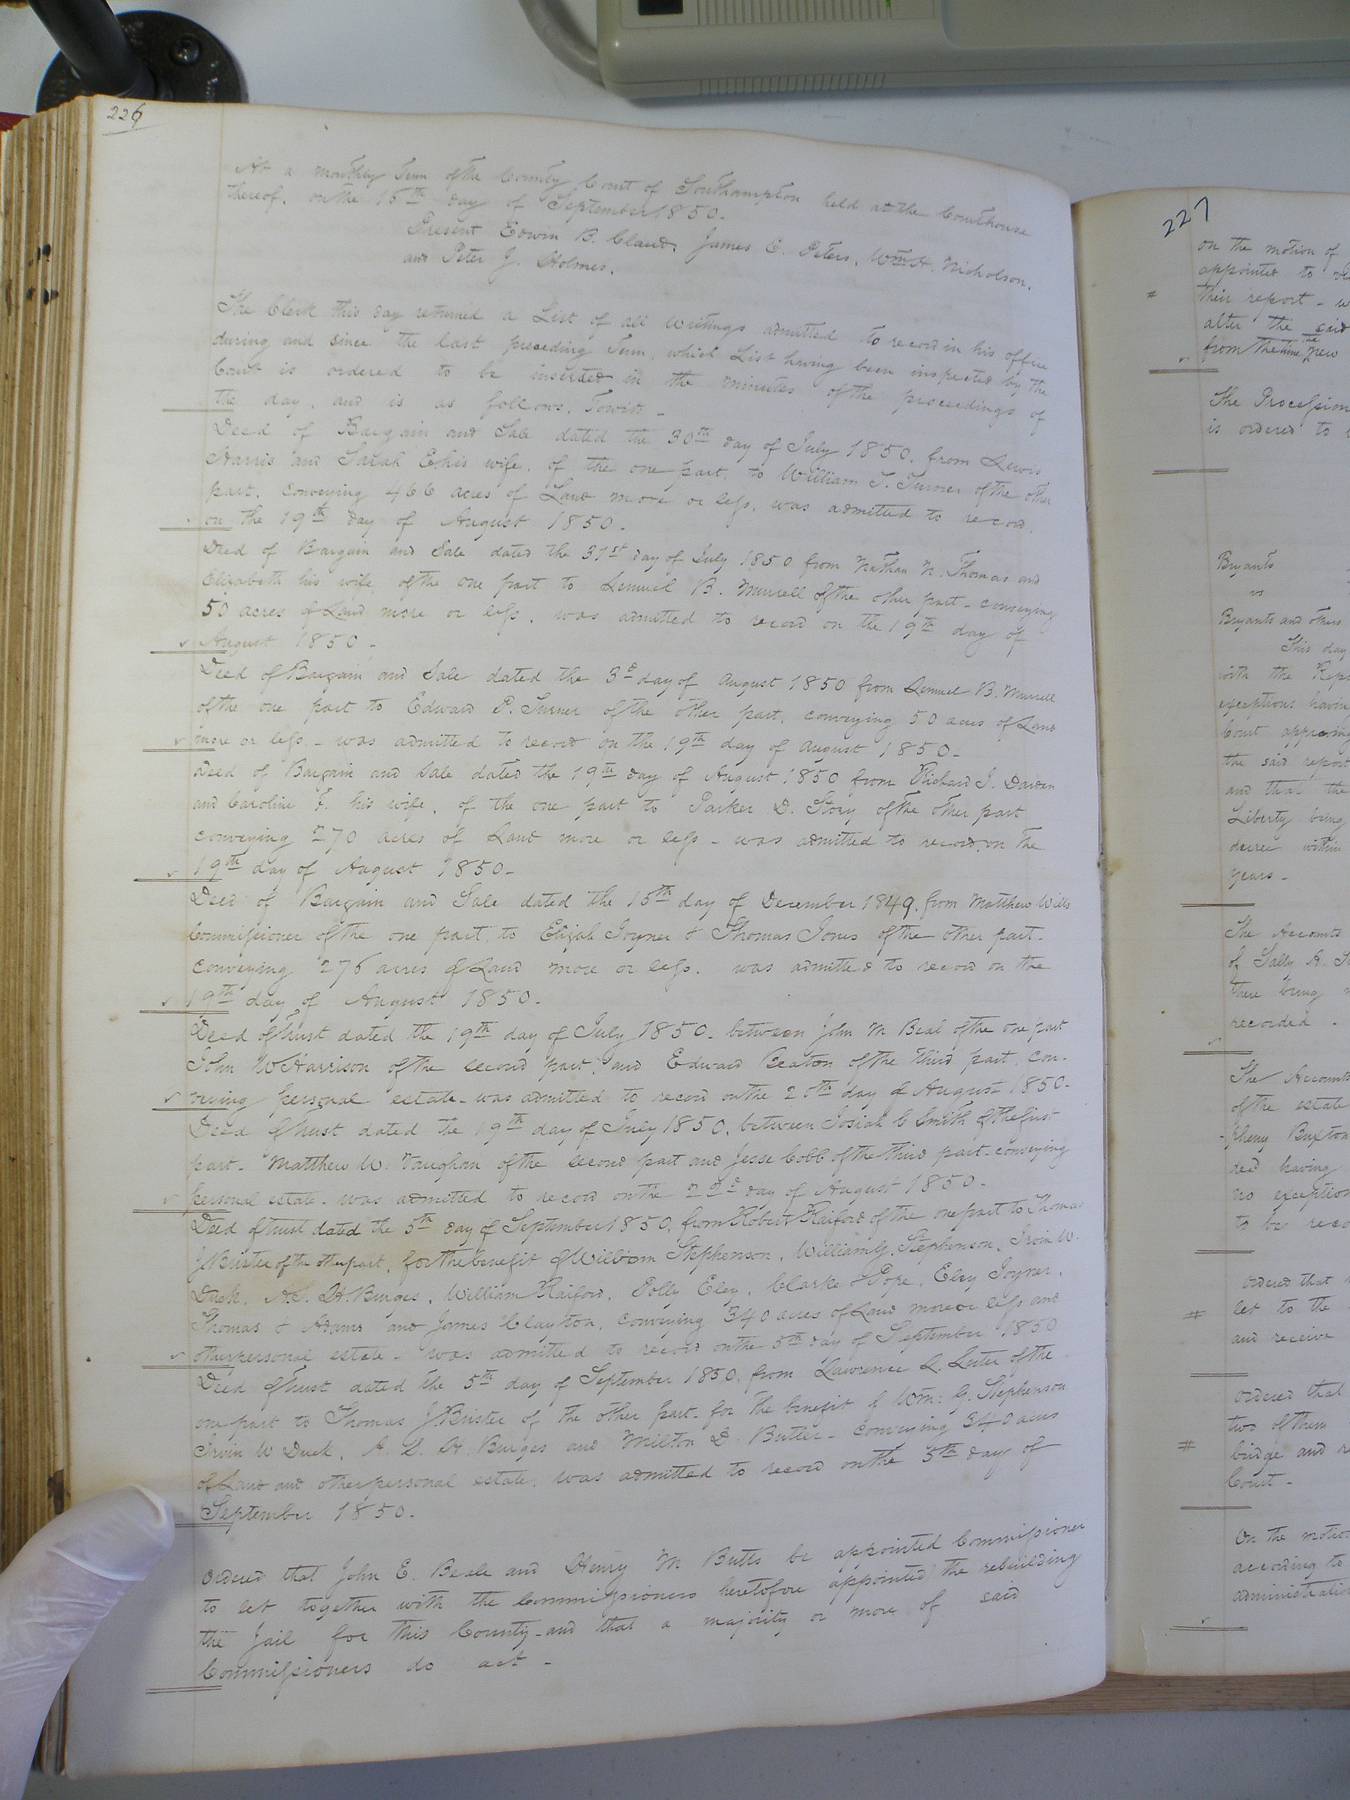 226
At a monthly Term of the County Court of Southampton held at the Courthouse
thereof, on the 16th day of September 1850.
Present Edwin B. Claud, James E. Peters, Wm H. Nicholson,
and Peter J. Holmes.
The Clerk this day returned a List of all Writings admitted to record in his office
during and since the last preceding Term, which List having been inspected by the
Court is ordered to be inserted in the minutes of the proceedings of
the day, and is as follows, Towit -
Deed of Bargain and Sale dated the 30th day of July 1850, from Lewis
Harris and Sarah E his wife, of the one part, to William T. Turner of the other
part, conveying 466 acres of Land more or less, was admitted to record,
on the 19th day of August 1850.
Deed of Bargain and Sale dated the 31st day of July 1850 from Nathan N. Thomas and
Elizabeth his wife, of the one part to Lemuel B. Murrell of the other part - conveying
50 acres of Land more or less, was admitted to record on the 19th day of
August 1850 -
Deed of Bargain and Sale dated the 3d day of August 1850 from Lemuel B. Murrell
of the one part to Edward P. Turner of the other part, conveying 50 acres of Land
more or less - was admitted to record on the 19th day of August 1850 -
Deed of Bargain and Sale dated the 19th day of August 1850 from Richard J. Darden
and Caroline F. his wife, of the one part to Parker D. Story of the other part
conveying 270 acres of Land more or less - was admitted to record on the
19th day of August 1850 -
Deed of Bargain and Sale dated the 15th day of December 1849, from Matthew Wills
Commissioner of the one part, to Elijah Joyner & Thomas Jones of the other part -
conveying 276 acres of Land more or less, was admitted to record on the
19th day of August 1850.
Deed of Trust dated the 19th day of July 1850 - between John M Beal of the one part
John W Harrison of the second part, and Edward Beaton of the third part, con-
veying personal estate - was admitted to record on the 20th day of August 1850 -
Deed of trust dated the 19th day of July 1850, between Josiah C Smith of the first
part - Matthew W. Vaughan of the second part and Jesse Cobb of the third part - conveying
personal estate - was admitted to record on the 22d day of August 1850 -
Deed of trust dated the 5th day of September 1850, from Robert Raiford of the one part to Thomas
J Brister of the other part, for the benefit of William Stephenson, William G. Stephenson, Irvin W.
Duck, A. L. H. Burges, William Raiford, Polly Eley, Clarke & Pope, Eley Joyner,
Thomas & Adams and James Clayton, conveying 340 acres of Land more or less and
other personal estate - was admitted to record on the 5th day of September 1850
Deed of trust dated the 5th day of September 1850, from Lawrence L. Luter of the
one part to Thomas J Brister of the other part - for the benefit of Wm: G. Stephenson
Irvin W Duck, A. L. H. Burges and Milton D. Butler - conveying 340 acres
of Land and other personal estate, was admitted to record on the 5th day of
September 1850.
Ordered that John E. Beale and Henry M. Butts be appointed Commissioner
to let together with the Commissioners heretofore appointed the rebuilding
the Jail for this County - and that a majority or more of said
Commissioners do act -
227
on the motion of
appointed to
their report -
alter the said
from the time the new
The Procession
is ordered to
Bryants
vs
Bryants and others
This day
with the Repo
exceptions having
Court approving
the said report
and that the
Liberty being
decree within
years -
The Accounts
of Sally A.
there being
recorded.
The Accounts
of the estate
pheny Buxton
ded having
no exception
to be reco
Ordered that
let to the
and receive
Ordered that
two of them
bridge and
Court -
On the motion
according to
administration